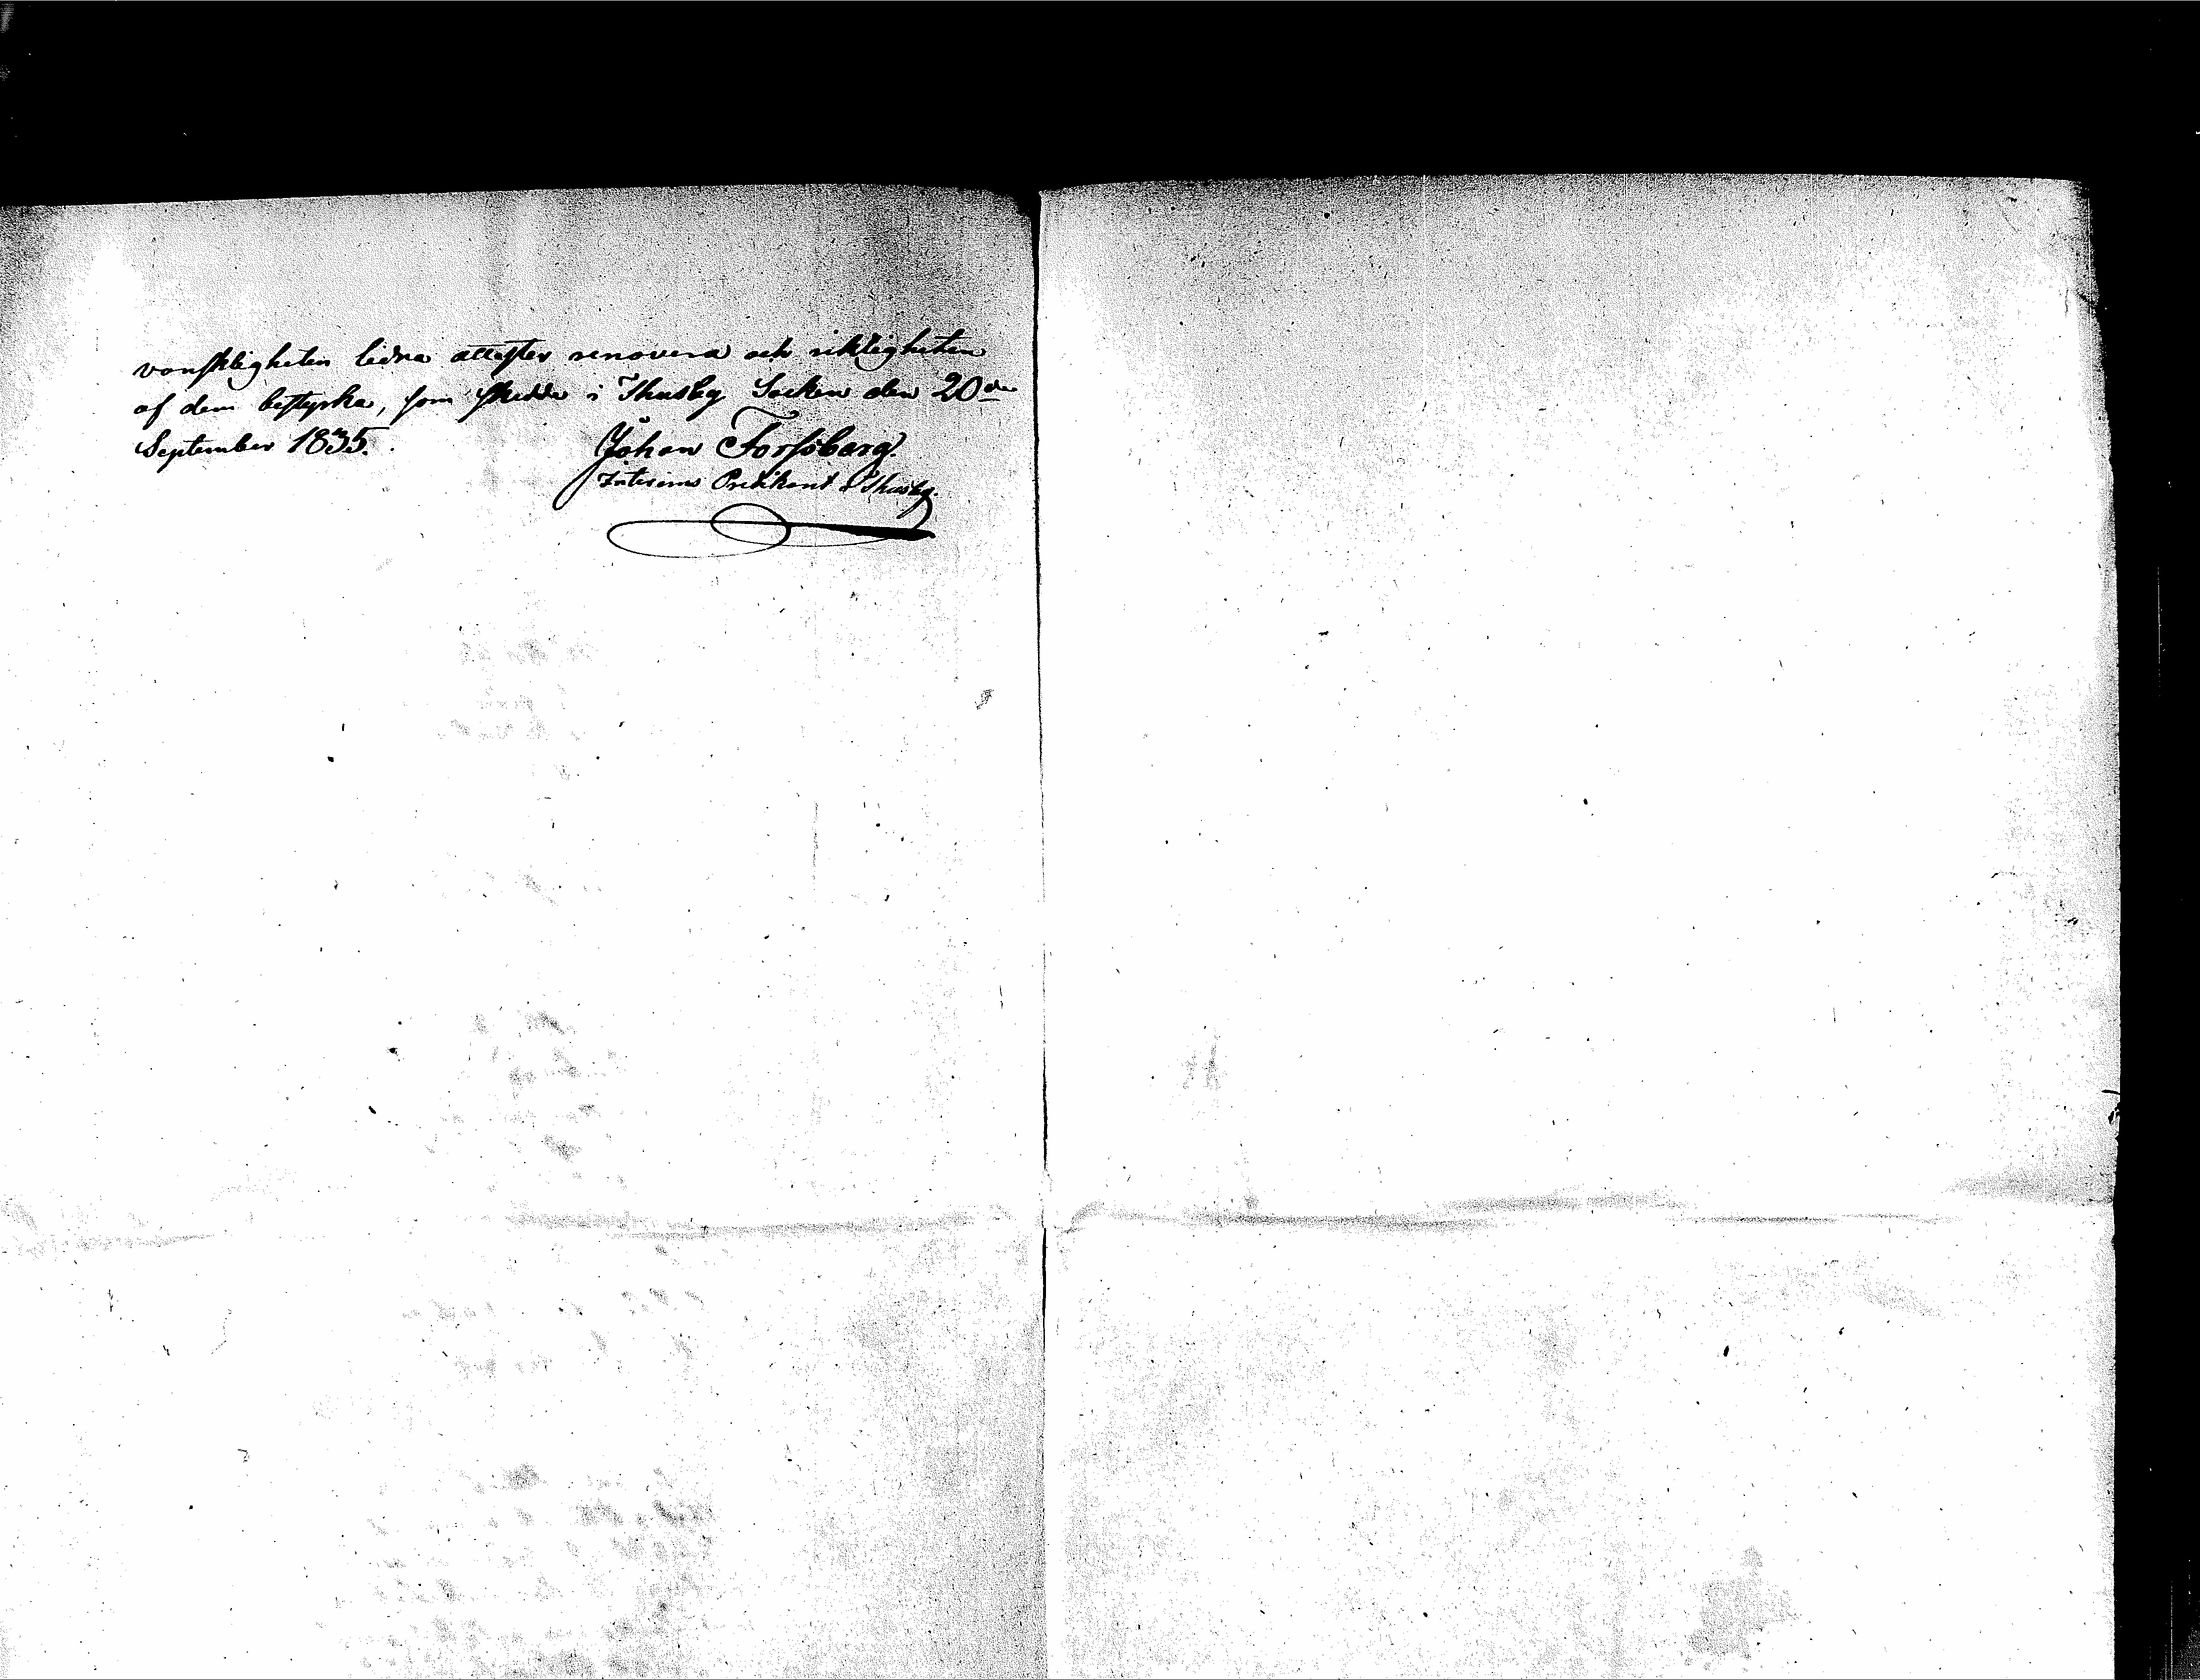 vanskligheten lidna attester renovera och riktigheten
af dem bestyrka, som skedde i Thusby Socken den 20de
September 1835.
Johan Forssberg.
Interims Predikant i Thusby.